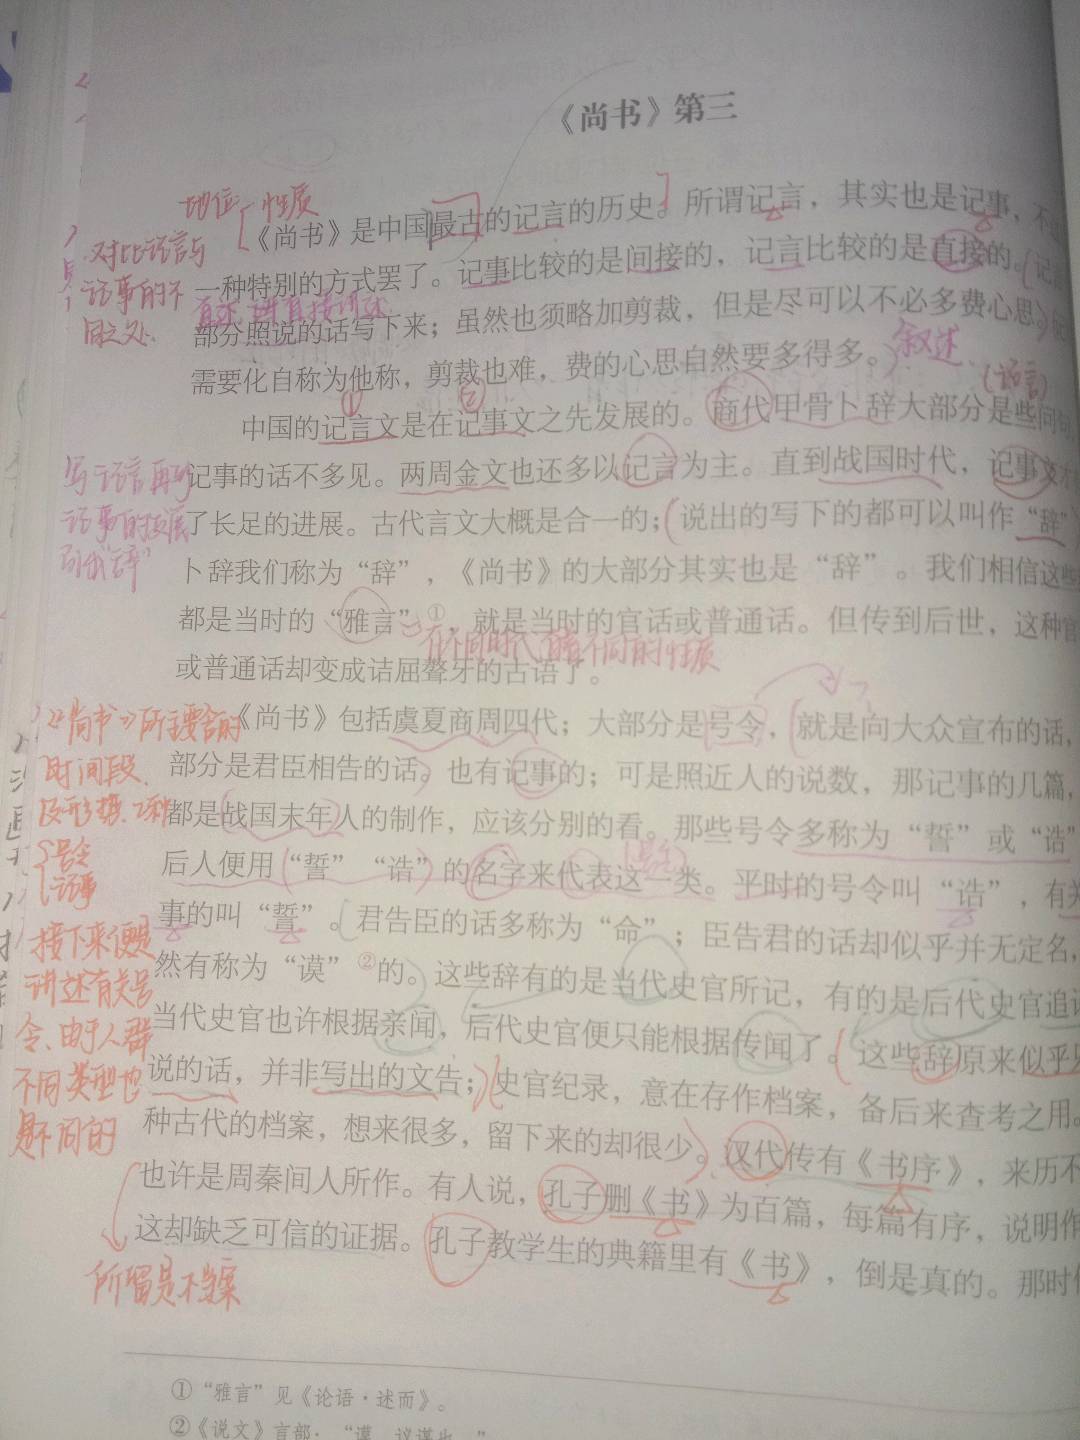 《尚书》第三
地位 性质
《尚书》是中国最古的记言的历史。所谓记言，其实也是记事，不
对比记言与
记事的不
同之处.
一种特别的方式罢了。记事比较的是间接的，记言比较的是直接的。记
直接讲述
部分照说的话写下来；虽然也须略加剪裁，但是尽可以不必多费心思。
叙述
需要化自称为他称，剪裁也难，费的心思自然要多得多。
① ②
中国的记言文是在记事文之先发展的。商代甲骨卜辞大部分是些问句，
写记言再到
记事的发展
引出“辞”
记事的话不多见。两周金文也还多以记言为主。直到战国时代，记事文才
了长足的进展。古代言文大概是合一的；说出的写下的都可以叫作“辞”
卜辞我们称为“辞”，《尚书》的大部分其实也是“辞”。我们相信这些
都是当时的“雅言”①，就是当时的官话或普通话。但传到后世，这种官
在不同时代有着不同的性质
或普通话却变成诘屈聱牙的古语了。
《尚书》所主要含的
时间段.
《尚书》包括虞夏商周四代；大部分是号令，就是向大众宣布的话，
部分是君臣相告的话。也有记事的；可是照近人的说数，那记事的几篇，
都是战国末年人的制作，应该分别的看。那些号令多称为“誓”或“诰”
号令
记事
后人便用“誓”“诰”的名字来代表这一类。平时的号令叫“诰”，有关
事的叫“誓”。君告臣的话多称为“命”；臣告君的话却似乎并无定名，
接下来便是
讲述有关号
令、由于人群
不同类型也
是不同的
然有称为“谟”②的。这些辞有的是当代史官所记，有的是后代史官追记
当代史官也许根据亲闻，后代史官便只能根据传闻了。这些辞原来似乎只
说的话，并非写出的文告；史官纪录，意在存作档案，备后来查考之用。
种古代的档案，想来很多，留下来的却很少。汉代传有《书序》，来历不
也许是周秦间人所作。有人说，孔子删《书》为百篇，每篇有序，说明作
这却缺乏可信的证据。孔子教学生的典籍里有《书》，倒是真的。那时
所留是档案
①“雅言”见《论语·述而》。
②《说文》言部：“谟，议谋也。”